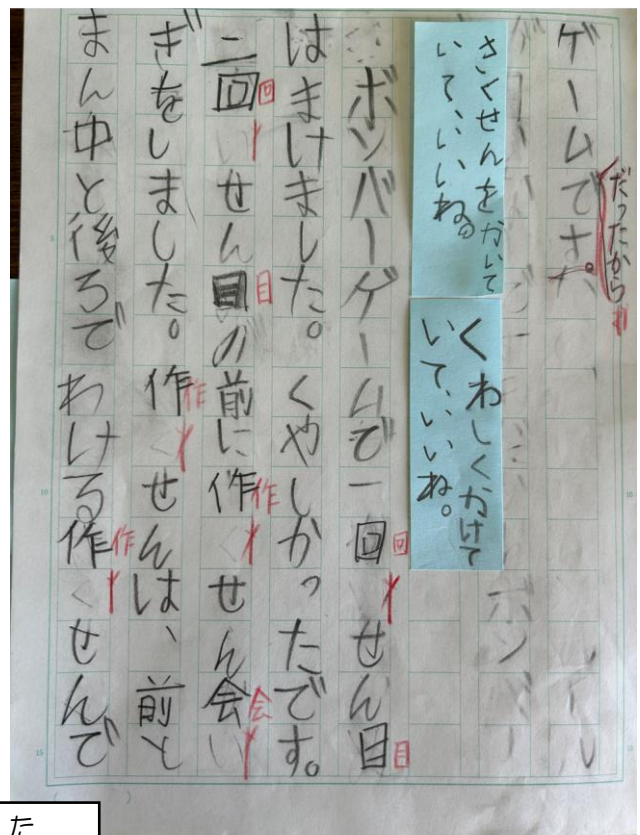 ゲームです。
だったから
ボンバー
さくせんをかいて
いて、いいね。
くわしくかけて
いて、いいね。
ボンバーゲームで一回せん目
回
目
はまけました。くやしかったです。
二回せん目の前に作せん会
回
目
作
会
ぎをしました。作せんは、前と
作
まん中と後ろでわける作せんで
作
た